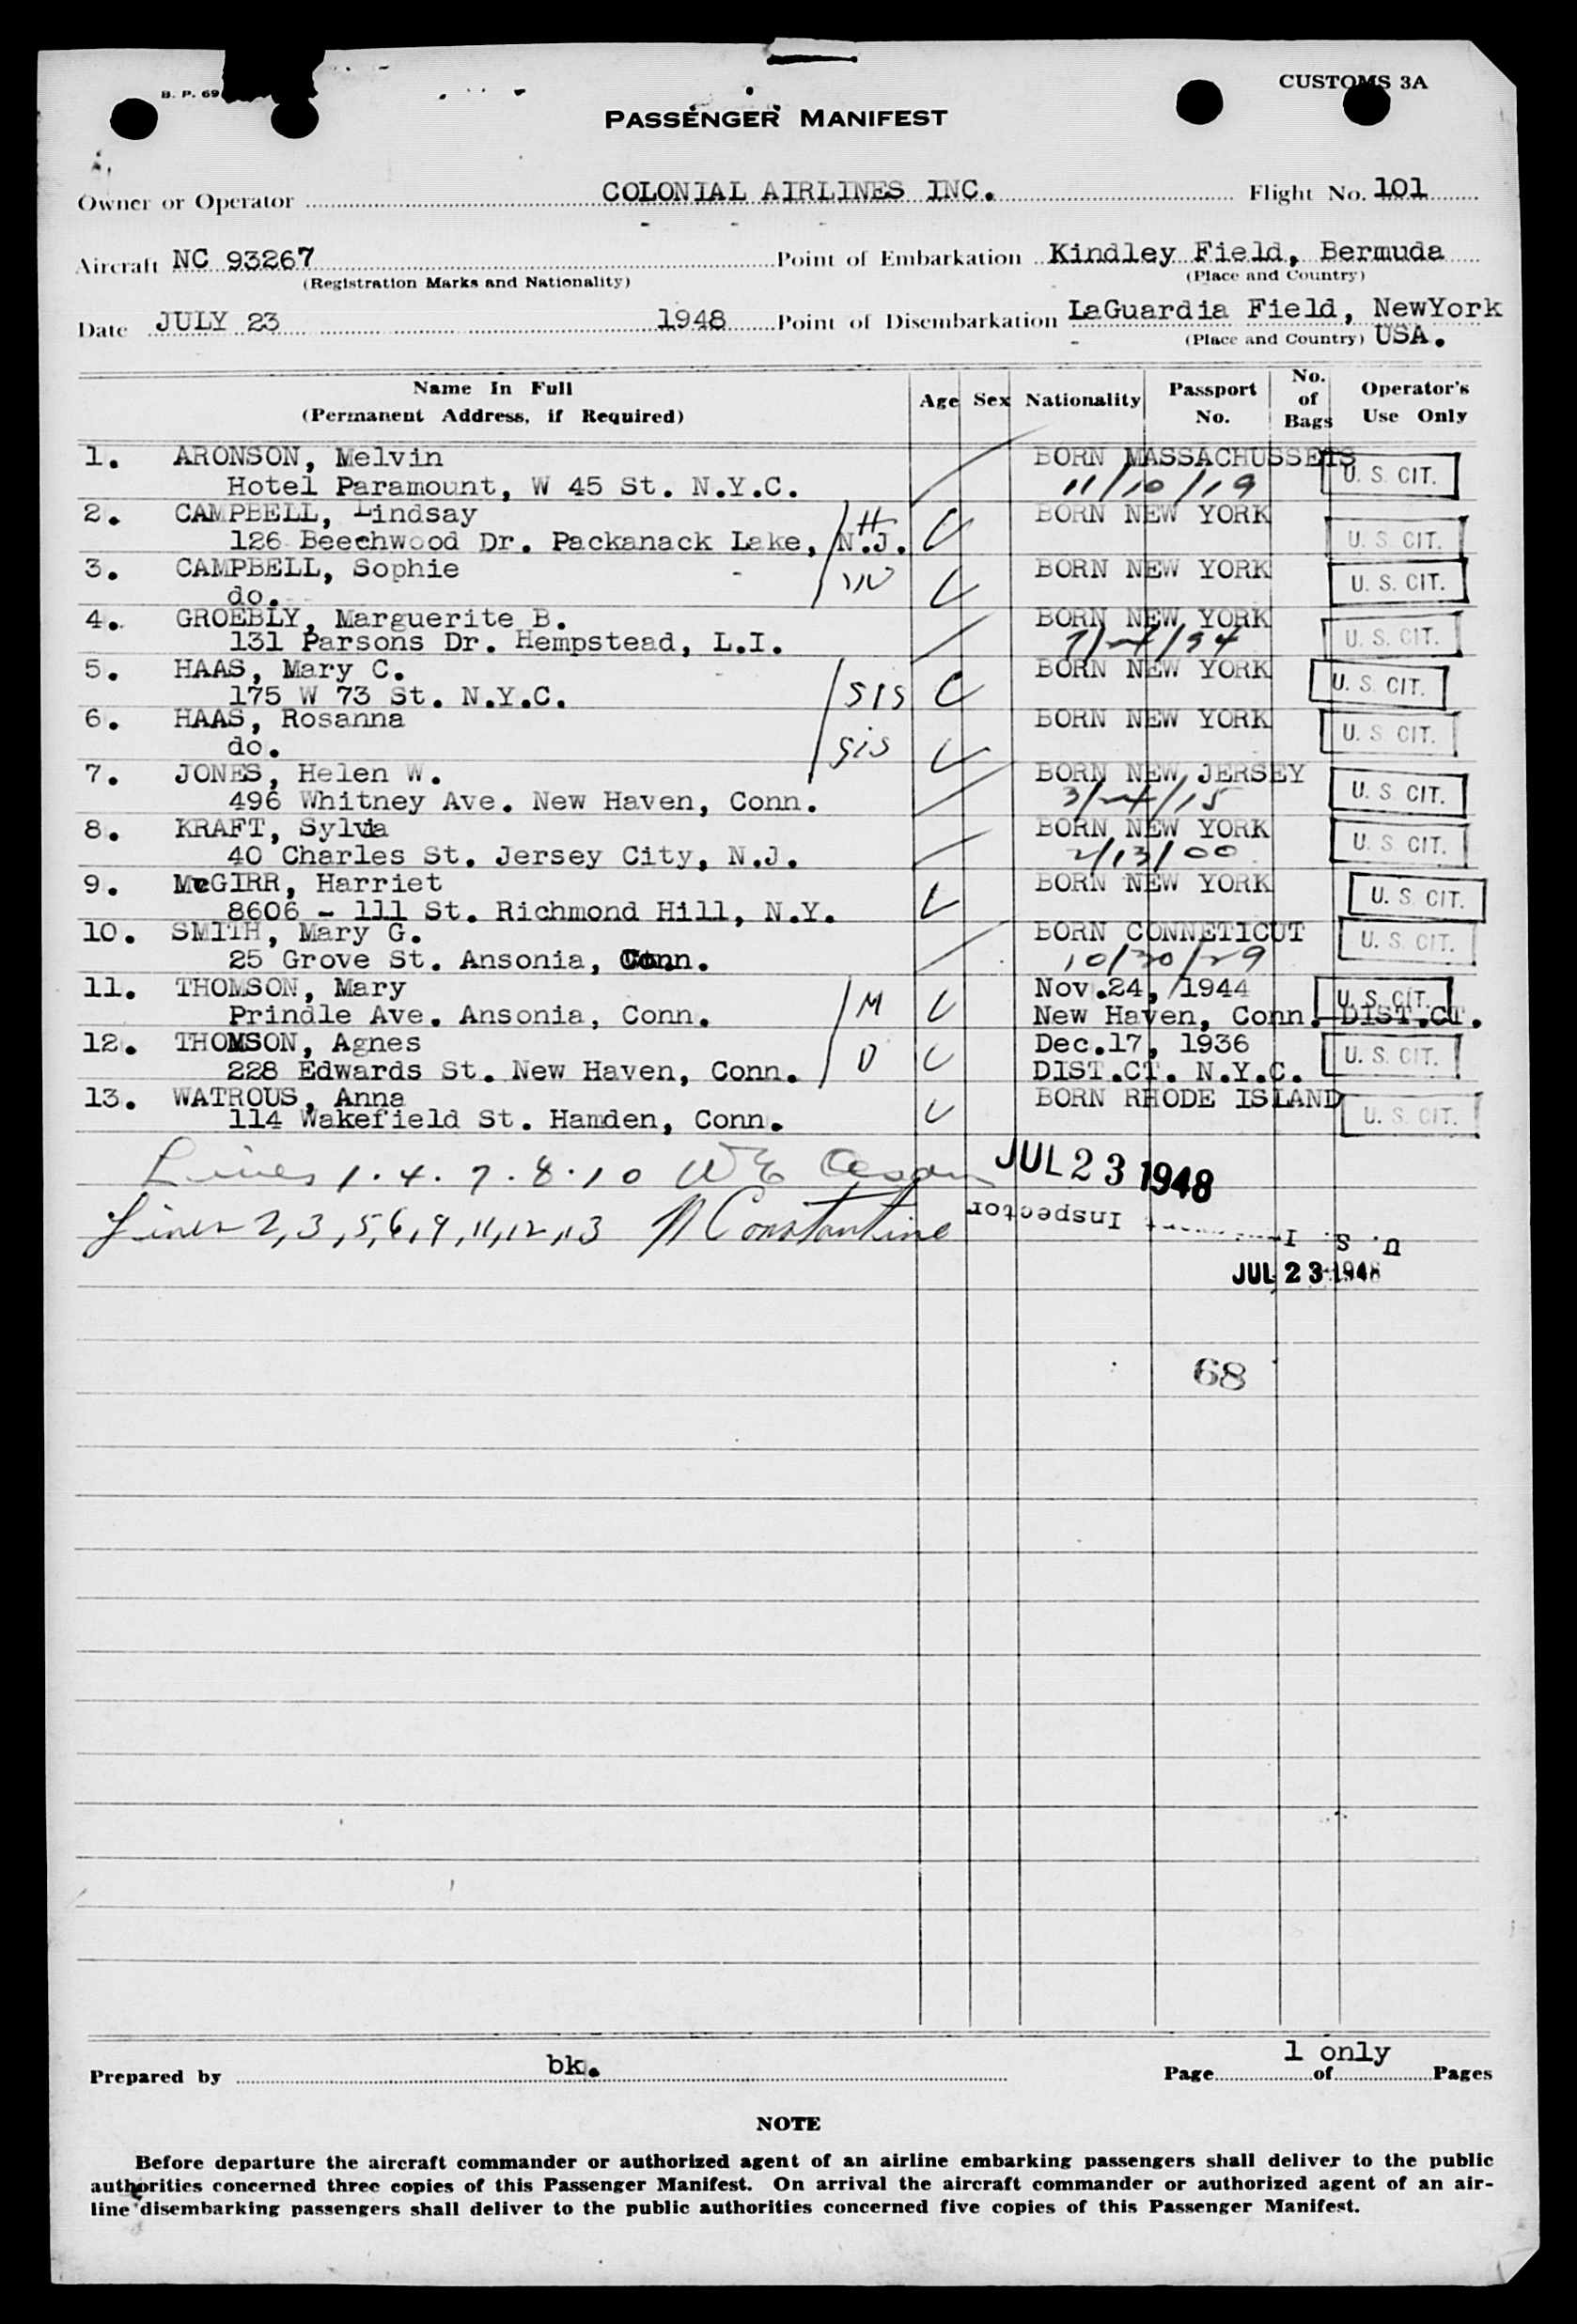 B. P. 69
CUSTOMS 3A
PASSENGER MANIFEST
Owner or Operator COLONIAL AIRLINES INC. Flight No. 101
Aircraft NC 93267 Point of Embarkation Kindley Field, Bermuda
(Registration Marks and Nationality) (Place and Country)
Date JULY 23 1948 Point of Disembarkation LaGuardia Field, NewYork
(Place and Country) USA.
Name In Full
(Permanent Address, if Required) Age Sex Nationality Passport No. No. of Bags Operator's Use Only
1. ARONSON, Melvin BORN MASSACHUSSETS
Hotel Paramount, W 45 St. N.Y.C. 11/10/19 U. S. CIT.
2. CAMPBELL, Lindsay H BORN NEW YORK
126 Beechwood Dr. Packanack Lake, N.J. U. S. CIT.
3. CAMPBELL, Sophie W BORN NEW YORK U. S. CIT.
do.
4. GROEBLY, Marguerite B. BORN NEW YORK
131 Parsons Dr. Hempstead, L.I. U. S. CIT.
5. HAAS, Mary C. BORN NEW YORK
175 W 73 St. N.Y.C. sis U. S. CIT.
6. HAAS, Rosanna BORN NEW YORK
do. sis U. S. CIT.
7. JONES, Helen W. BORN NEW JERSEY
496 Whitney Ave. New Haven, Conn. U. S. CIT.
8. KRAFT, Sylvia BORN NEW YORK
40 Charles St. Jersey City, N.J. 2/13/00 U. S. CIT.
9. McGIRR, Harriet BORN NEW YORK
8606 - 111 St. Richmond Hill, N.Y. U. S. CIT.
10. SMITH, Mary G. BORN CONNETICUT
25 Grove St. Ansonia, Conn. 10/30/29 U. S. CIT.
11. THOMSON, Mary M Nov.24, 1944 U. S. CIT.
Prindle Ave. Ansonia, Conn. New Haven, Conn. DIST.CT.
12. THOMSON, Agnes D Dec.17, 1936
228 Edwards St. New Haven, Conn. DIST.CT. N.Y.C. U. S. CIT.
13. WATROUS, Anna BORN RHODE ISLAND
114 Wakefield St. Hamden, Conn. U. S. CIT.
Lines 1. 4. 7. 8. 10 JUL 23 1948
Lines 2, 3, 5, 6, 9, 11, 12, 13 N Constantine
U. S. Inspector
JUL 23 1948
68
Prepared by bk. Page 1 only of Pages
NOTE
Before departure the aircraft commander or authorized agent of an airline embarking passengers shall deliver to the public
authorities concerned three copies of this Passenger Manifest. On arrival the aircraft commander or authorized agent of an air-
line disembarking passengers shall deliver to the public authorities concerned five copies of this Passenger Manifest.